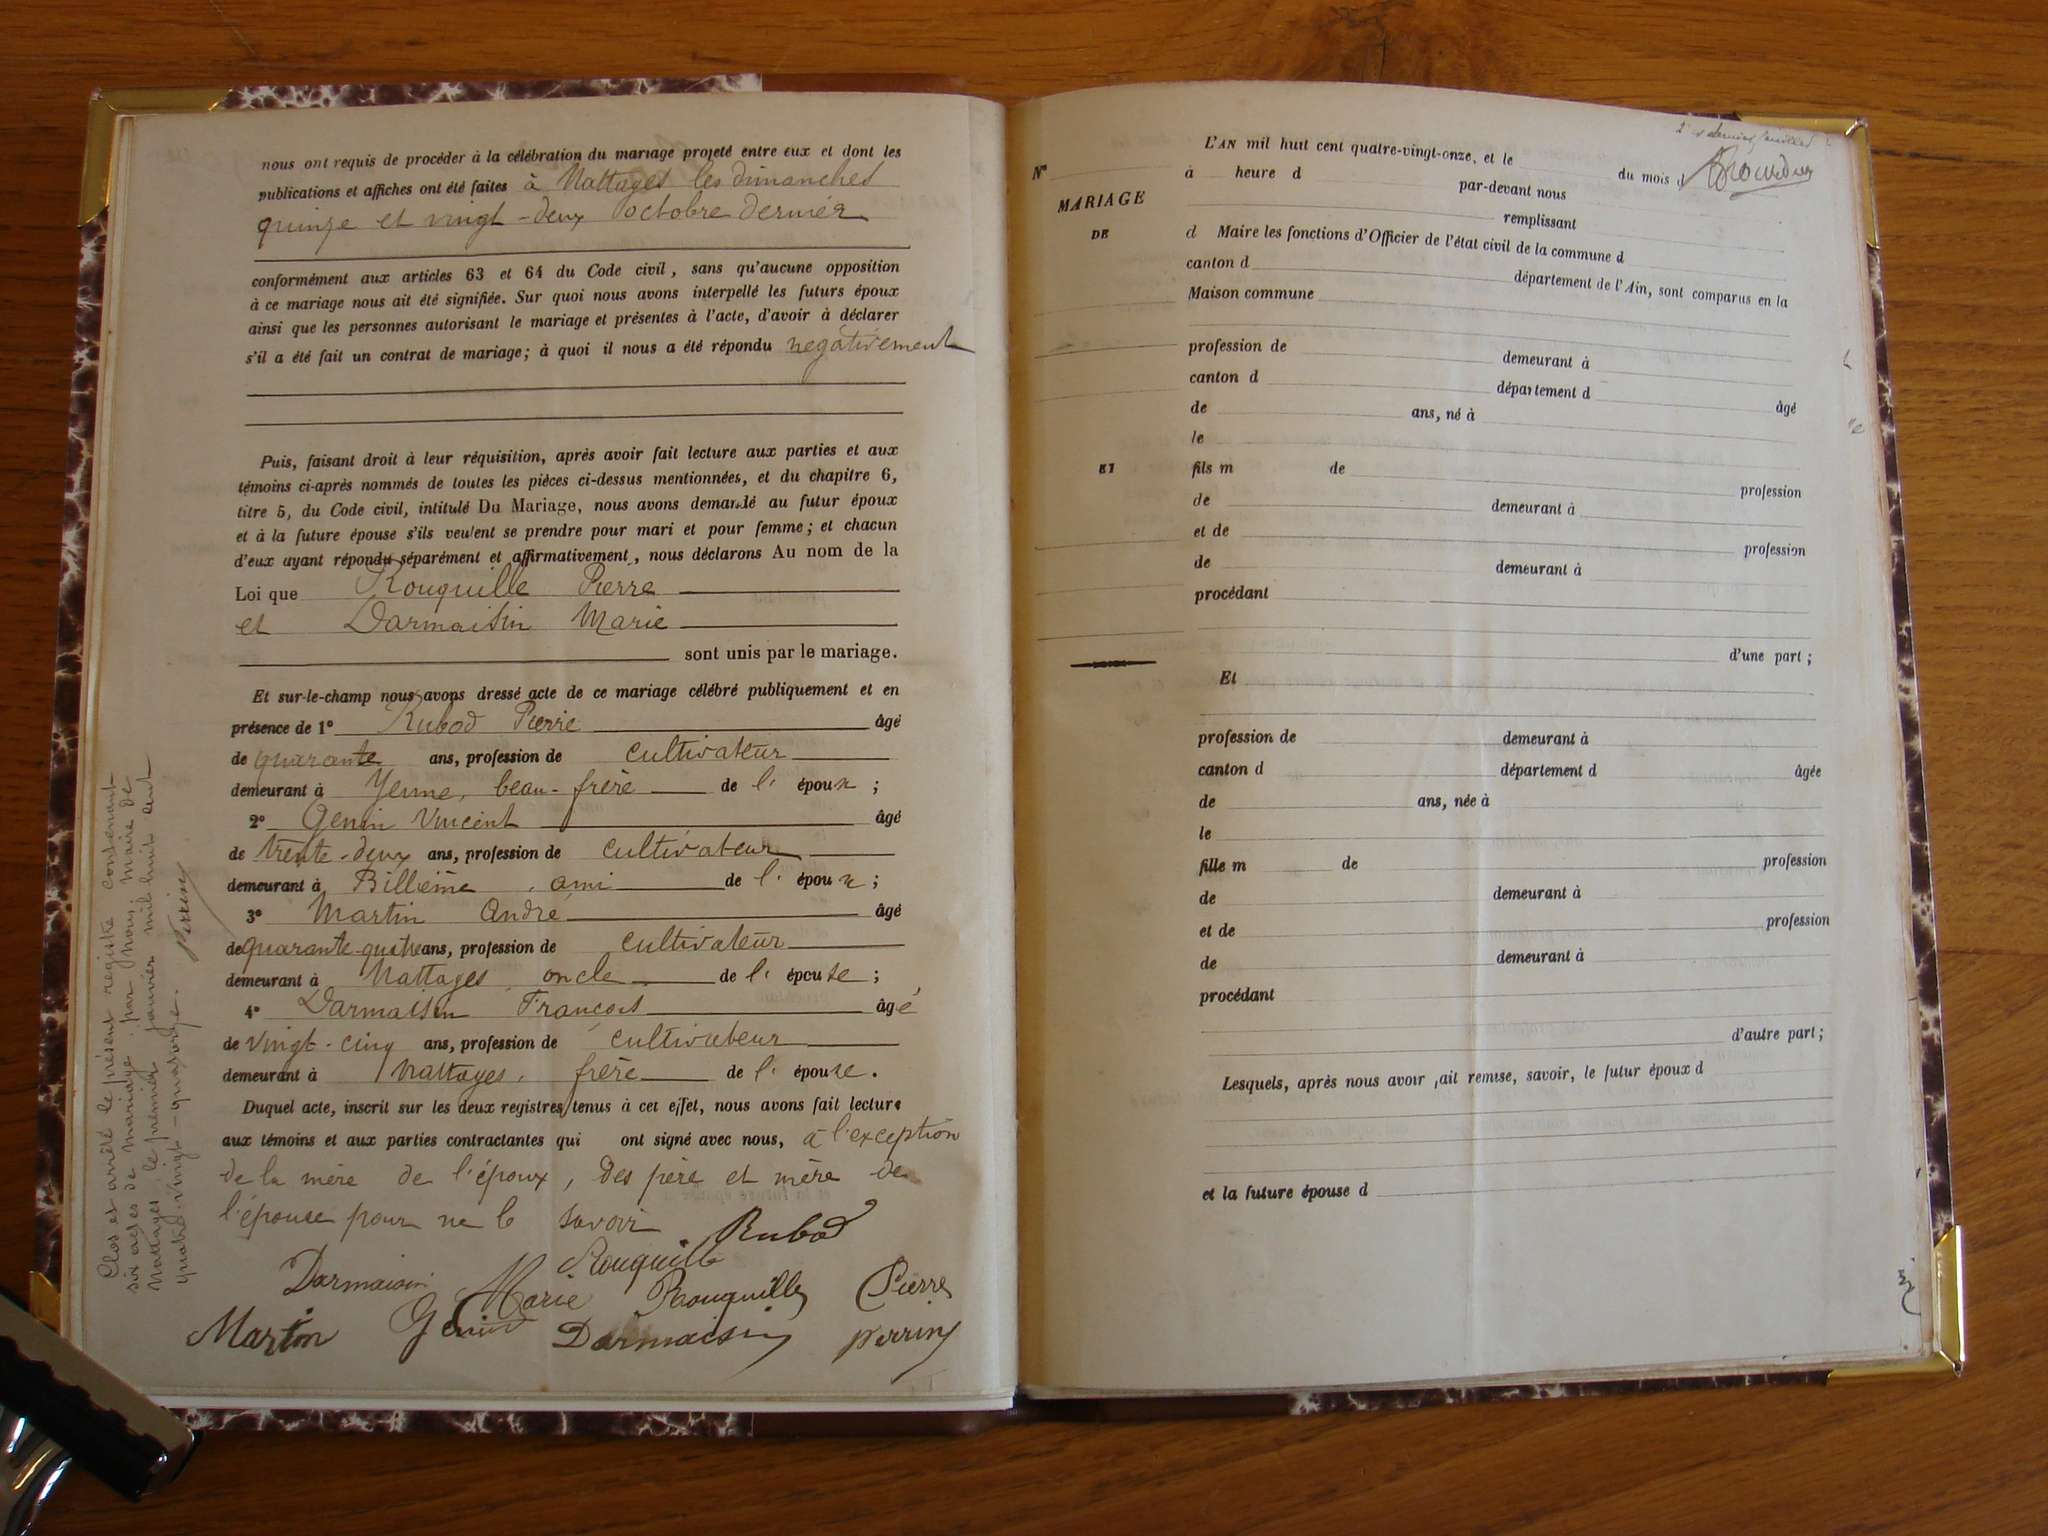 nous ont requis de procéder à la célébration du mariage projeté entre eux et dont les
publications et affiches ont été faites à Nattages les dimanches
quinze et vingt-deux octobre dernier
conformément aux articles 63 et 64 du Code civil, sans qu'aucune opposition
à ce mariage nous ait été signifiée. Sur quoi nous avons interpellé les futurs époux
ainsi que les personnes autorisant le mariage et présentes à l'acte, d'avoir à déclarer
s'il a été fait un contrat de mariage; à quoi il nous a été répondu négativement
Puis, faisant droit à leur réquisition, après avoir fait lecture aux parties et aux
témoins ci-après nommés de toutes les pièces ci-dessus mentionnées, et du chapitre 6,
titre 5, du Code civil, intitulé Du Mariage, nous avons demandé au futur époux
et à la future épouse s'ils veulent se prendre pour mari et pour femme; et chacun
d'eux ayant répondu séparément et affirmativement, nous déclarons Au nom de la
Loi que Rouquille Pierre
et Darmaisin Marie
sont unis par le mariage.
Et sur-le-champ nous avons dressé acte de ce mariage célébré publiquement et en
présence de 1° Rubod Pierre âgé
de quarante ans, profession de cultivateur
demeurant à Yenne, beau-frère de l'époux;
2° Genin Vincent âgé
de trente-deux ans, profession de cultivateur
demeurant à Billième, ami de l'époux;
3° Martin André âgé
de quarante-quatre ans, profession de cultivateur
demeurant à Nattages, oncle de l'épouse;
4° Darmaisin François âgé
de vingt-cinq ans, profession de cultivateur
demeurant à Nattages, frère de l'épouse.
Duquel acte, inscrit sur les deux registres tenus à cet effet, nous avons fait lecture
aux témoins et aux parties contractantes qui ont signé avec nous, à l'exception
de la mère de l'époux, des père et mère de
l'épouse pour ne le savoir
Rubod
Rouquille
Darmaisin Marie Rouquille Pierre
Martin Genin Darmaisin Perrin
Clos et arrêté le présent registre contenant
six actes de mariage, par nous, maire de
Nattages, le premier janvier mil huit cent
quatre-vingt-quatorze. Perrin
2e et dernier feuillet
L'AN mil huit cent quatre-vingt-onze, et le du mois d
N° à heure d par-devant nous
MARIAGE remplissant
DE d Maire les fonctions d'Officier de l'état civil de la commune d
canton d département de l'Ain, sont comparus en la
Maison commune
profession de demeurant à
canton d département d âgé
de ans, né à
le
ET fils m de profession
de demeurant à
et de profession
de demeurant à
procédant
d'une part;
Et
profession de demeurant à
canton d département d âgée
de ans, née à
le
fille m de profession
de demeurant à
et de profession
de demeurant à
procédant
d'autre part;
Lesquels, après nous avoir fait remise, savoir, le futur époux d
et la future épouse d